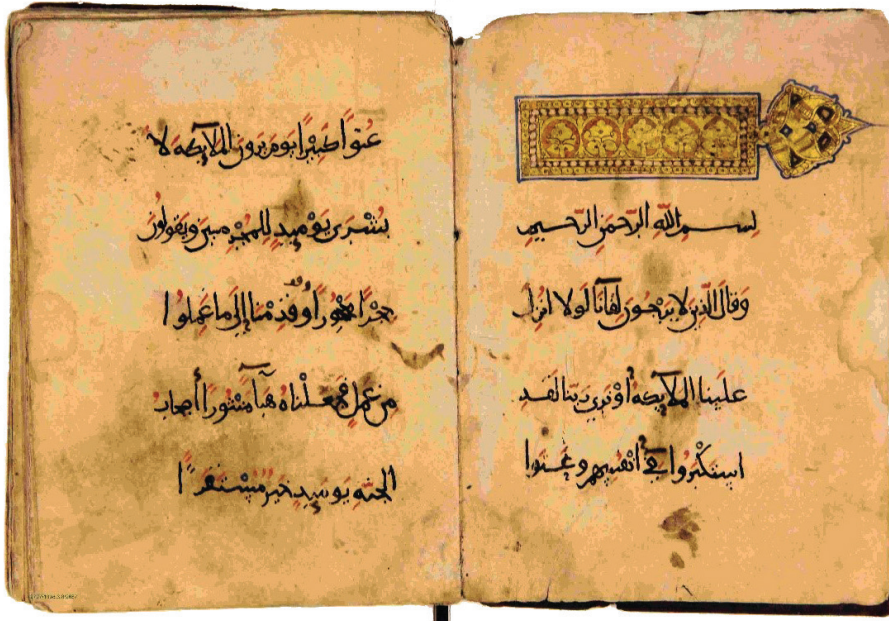 بِسمِ اللَّهِ الرَّحمَنِ الرَّحيمِ
وَقَالَ الَّذِينَ لا يَرْجُونَ لِقَآنَا لَولا انزِل
عَلَينا المَلآيِكَةُ أَوْ نَرى رَبَّنا لَقَدِ
استَكْبَرُوا فِي أَنْفُسِهِم وَعَتَوا
عُتوًّا كَبِيْرًا يَومَ يَرَونَ المَلآيِكَهَ لا
بُشْرَى يَوْمَيِذٍ لِلمُجْرِمينَ وَيَقولُونَ
حِجْرًا مَحْجُورًا وَقَدِمْنا إِلَى ما عَمِلُوا
مِن عَمَلٍ فَجَعَلْنَاهُ هَبآءً مَنْثورًا أَصحابُ
الجَنَّهِ يَومَيِذٍ خَيرٌ مُسْتَقَرًّا